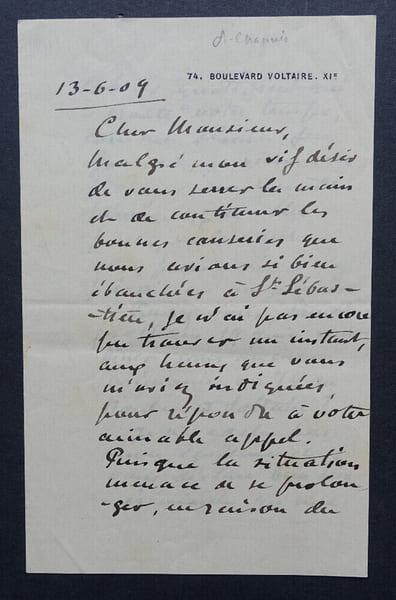 74, BOULEVARD VOLTAIRE. XIᵉ
13-6-09
Cher Monsieur,
Malgré mon vif désir
de vous serrer la main
et de continuer les
bonnes causeries que
nous avions si bien
ébauchées à St Sébas-
-tien, je n'ai pas encore
pu trouver un instant,
aux heures que vous
m'aviez indiquées,
pour répondre à votre
aimable appel.
Puisque la situation
menace de se prolon
-ger, en raison du